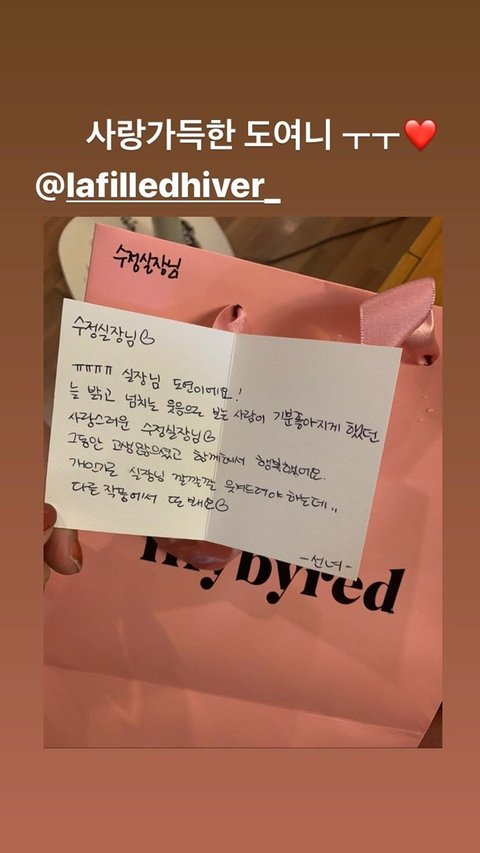 사랑가득한 도여니 ㅜㅜ❤️
@lafilledhiver_
수정실장님
수정실장님♡
ㅠㅠㅠㅠ 실장님 도연이에요!
늘 밝고 넘치는 웃음으로 보는 사람이 기분좋아지게 했던
사랑스러운 수정실장님♡
그동안 고생많으셨고 함께해서 행복했어요.
개인기로 실장님 깔깔깔 웃겨드려야 하는데..
다른 작품에서 또 봬요♡
-선녀-
mybyred